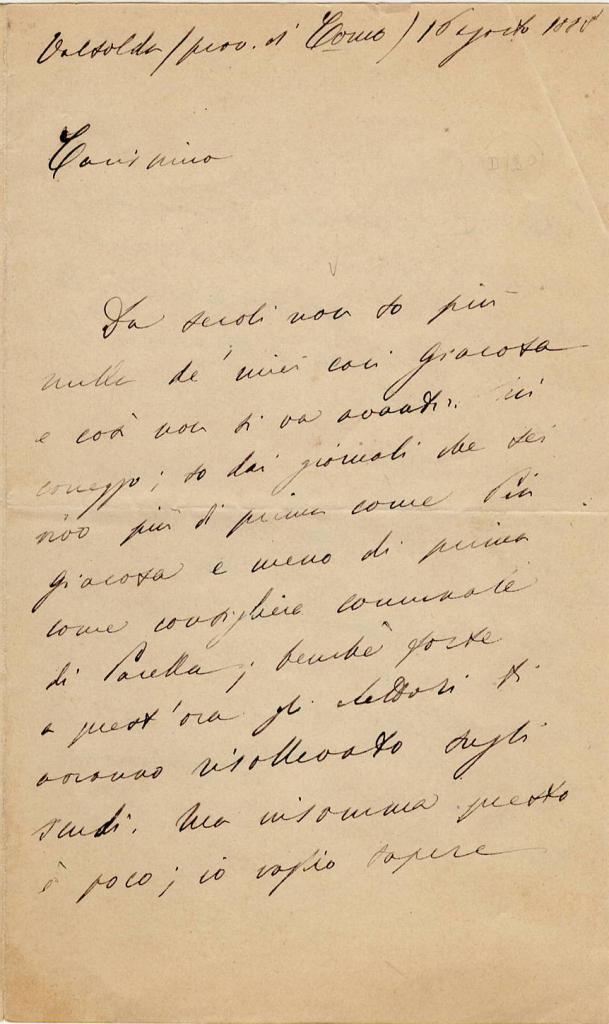 Valsolda (prov. di Como) 16 agosto 188
Carissimo
Da secoli non so più
nulla de' miei cari Giacosa
e così non si va avanti. Mi
correggo; so dai giornali che sei
vivo più di prima come Pin
Giacosa e meno di prima
come consigliere comunale
di Parella; benchè forse
a quest'ora gli elettori ti
avranno risollevato sugli
scudi. Ma insomma questo
è poco; io voglio sapere